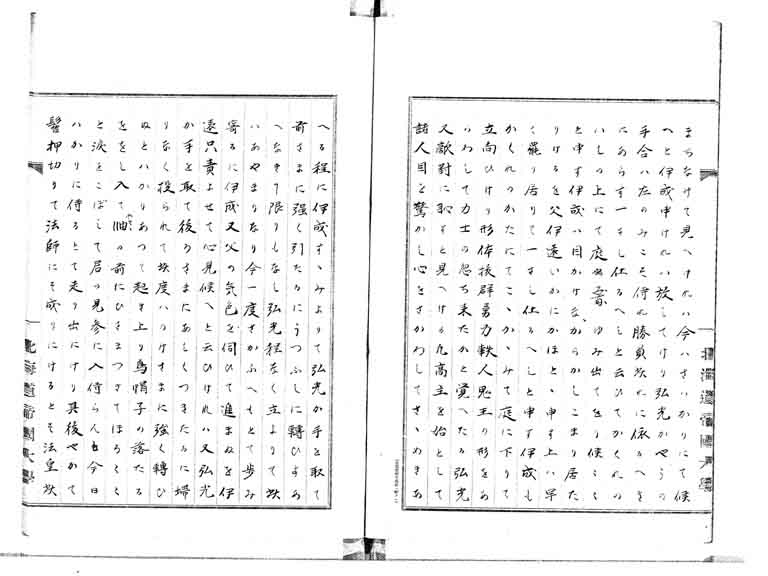 まちなけて見へけれハ今ハさハかりにて候
へと伊成申けれハ放してけり弘光かやうの
手合ハたのみこそ侍れ勝負次に依るへき
にあらす一さし仕るへしと云ひてかくれの
いしの上にて庭ゆみ出てをり候らく
と申す伊成ハ目かけなからかしこまり居た
りけるを父伊遠いかにかほとゝ申す上ハ早
く罷り居りて一さし仕るへしと申す伊成も
かくれのかたにてこゝかゝみて庭に下りて
立向ひけり形体抜群勇力鉄人鬼王の形をあ
らわして力士の忽ち来たかと覚へたる弘光
又敵対に恥すと見へける凡高主を始として
諸人目を驚かし心をさわかしてさゝめきあ
北海道帝國大學
へる程に伊成すゝみよりて弘光か手を取て
前さまに強く引たるにうつふしに轉ひすあ
へなき事限りもなし弘光程なく立よりて此
ハあやまりなり今一度さかふへもとて歩み
寄るに伊成又父の気色を伺ひて進まぬを伊
遠只責よせて心見候へと云ひけれハ又弘光
か手を取て後のさまにあしくつきたるに
りなく投られて此度ハのけさまに強く轉ひ
ぬとハかりあつて起き上り烏帽子の落たる
をゝし入て帥の前にひさまつきてほろくく
と涙をこぼして君の見参に入侍らん事今日
ハかりに侍るとて走り出にけり其後やかて
髻押切りて法師にそ成りにけるとそ法皇此
北海道帝國大學